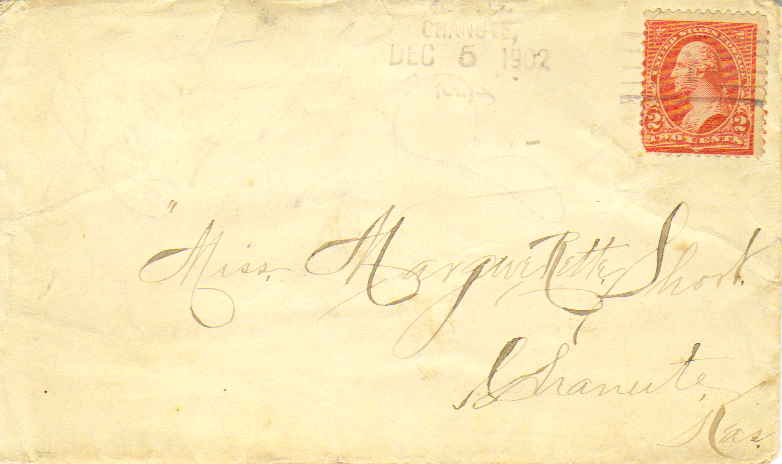 DEC 5 1902
UNITED STATES POSTAGE
2 TWO CENTS 2
"Miss. Marguerette Short.
Chanute,
Kas.